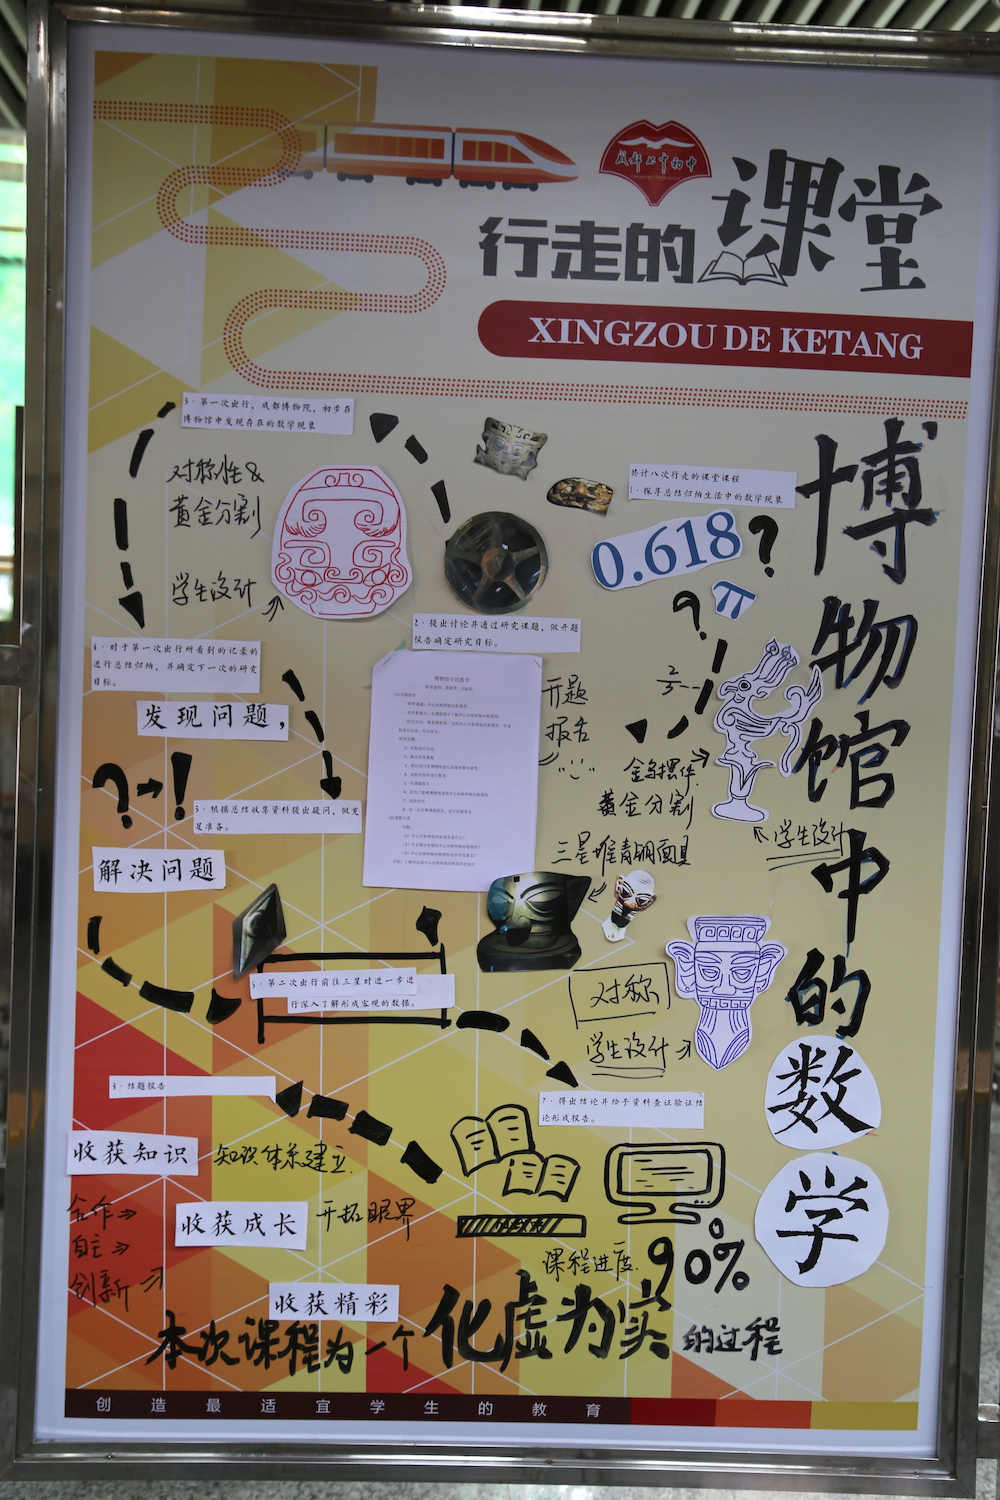 成都七中初中
行走的课堂
XINGZOU DE KETANG
博物馆中的数学
共计八次行走的课堂课程
1·探寻总结归纳生活中的数学现象
0.618
?
π
?
2·提出讨论并通过研究课题，做开题
报告确定研究目标。
博物馆中的数学
开题
报告
金乌摆件
黄金分割
学生设计
三星堆青铜面具
3·第一次出行，成都博物院，初步在
博物馆中发现存在的数学现象
对称性&
黄金分割
学生设计
4·对于第一次出行所看到的记录的
进行总结归纳，并确定下一次的研究
目标。
发现问题，
?→!
5·根据总结收集资料提出疑问，做充
足准备。
解决问题
·第二次出行前往三星对进一步进
行深入了解形成客观的数据。
对称
学生设计
7·得出结论并给予资料查证验证结
论形成报告。
·结题报告
收获知识
知识体系建立.
合作
自主
创新
收获成长
开拓眼界
课程进度.
90%
收获精彩
本次课程为一个化虚为实的过程
创造最适宜学生的教育